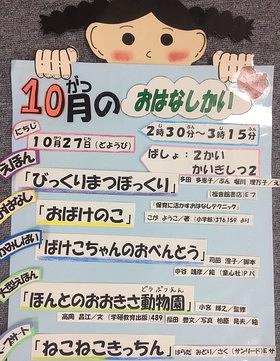 10月のおはなしかい
がつ
にちじ
10月27日(どようび)
2時30分～3時15分
ばしょ：2かい
かいぎしつ2
えほん
「びっくりまつぼっくり」
多田 多恵子/ぶん 堀川 理万子/え
(福音館書店) Eフ
おはなし
「おばけのこ」
「保育に活かすおはなしテクニック」
こが ようこ/著 (小学館) 376.159
かみしばい
「ばけこちゃんのおべんとう」
岡田 澄子/脚本
中谷 靖彦/絵 (童心社) Pバ
大型えほん
「ほんとのおおきさ動物園」
どうぶつえん
小宮 輝之/監修
高岡 昌江/文 (学研教育出版) 489
福田 豊文/写真 柏原 晃夫/絵
「ねこねこきっちん」